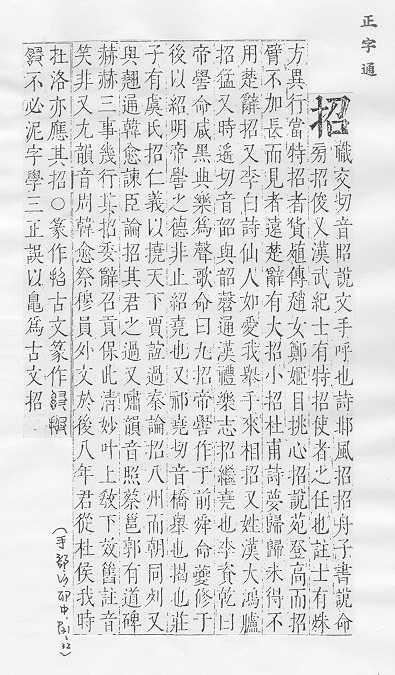 正字通
招 職交切音昭說文手呼也詩邶風招招舟子書說命
旁招俊乂漢武紀士有特招使者之任也註士有殊
方異行當特招者貨殖傳趙女鄭姬目挑心招說苑登高而招
臂不加長而見者遠楚辭有大招小招杜甫詩夢歸歸未得不
用楚辭招又李白詩仙人如愛我舉手來相招又姓漢大鴻臚
招猛又時遙切音韶與韶磬通漢禮樂志招繼堯也李乾曰
帝嚳命咸黑典樂爲聲歌命曰九招帝嚳作于前舜命夔修于
後以紹明帝嚳之德非止紹堯也又祁堯切音橋舉也揭也莊
子有虞氏招仁義以撓天下賈誼過秦論招八州而朝同列又
與翹通韓愈諫臣論招其君之過又嘯韻音照蔡邕郭有道碑
赫赫三事幾行其招委辭召貢保此清妙叶上敎下效舊註音
笑非又尤韻音周韓愈祭穆員外文於後八年君從杜侯我時
在洛亦應其招○篆作古文篆作
不必泥字學三正誤以鼂爲古文招
(手部 卯中